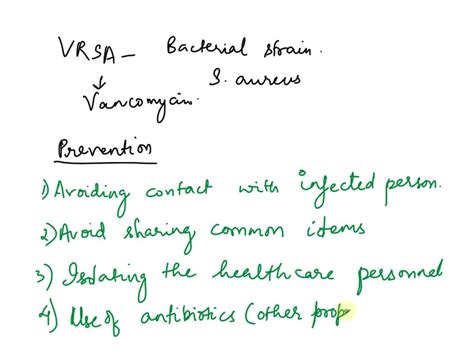 VRSA - Bacterial strain.
S. aureus
Vancomycin.
Prevention
1) Avoiding contact with infected person.
2) Avoid sharing common items
3) Isolating the healthcare personnel
4) Use of antibiotics (other prop